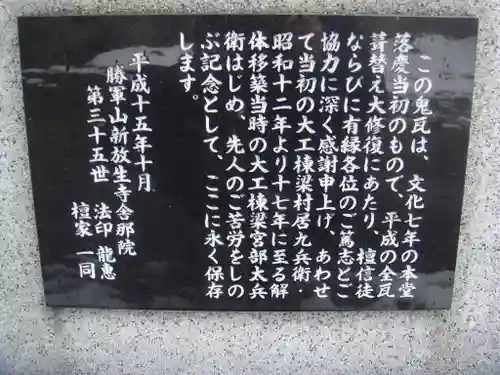 この鬼瓦は、文化七年の本堂
落慶当初のもので、平成の全瓦
葺替え大修復にあたり、檀信徒
ならびに有縁各位のご篤志とご
協力に深く感謝申上げ、あわせ
て当初の大工棟梁村居九兵衛・
昭和十二年より十七年に至る解
体移築当時の大工棟梁宮部太兵
衛はじめ、先人のご苦労をしの
ぶ記念として、ここに永く保存
します。
平成十五年十月
勝軍山新放生寺舎那院
第三十五世 法印 龍惠
檀家 一同